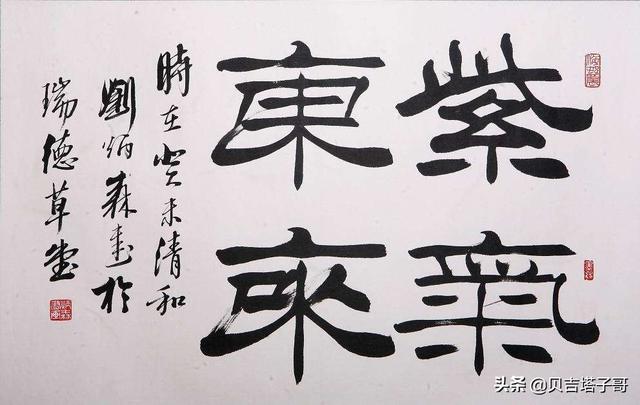 紫氣
東來
時在癸未清和
劉炳森書於
瑞德草堂
头条 @贝吉塔子哥